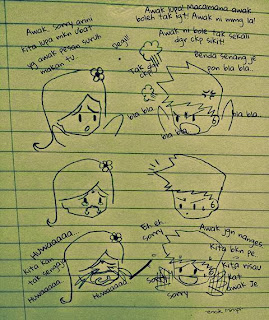 Awak, sorry arini
kita lupa mkn ubat
yg awak pesan suruh
makan tu..
Awak lupa! macamana awak
boleh tak igt! Awak ni mmg la!
Awak ni bole tak sekali
dgr ckp sikit!
Benda senang je
pon bla bla..
Tak
ckp
bla..
bla bla
bla bla..
bla bla
Huwaaaaa..
kita kan
tak sengaja
Huwaaaa..
Huwaaaa
Eh eh
sorry
Awak jgn nanges..
Kita bkn pe..
Kita risau
kat
awak je
Sorry
sorry